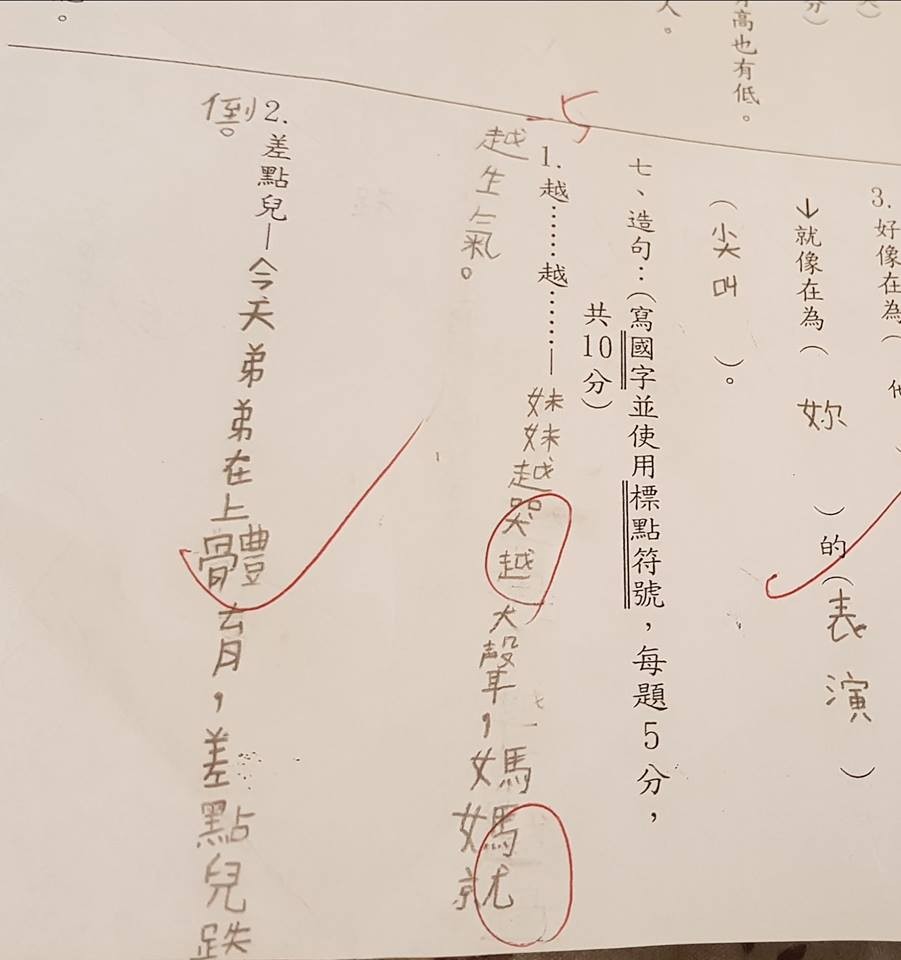 高也有低。
人。
3.好像在為(
↓就像在為(妳)的(表演)
(尖叫)。
七、造句：(寫國字並使用標點符號，每題5分，
共10分)
-5
1.越……越……—妹妹越哭越大聲，媽媽就
越生氣。
2.差點兒—今天弟弟在上體育，差點兒跌
倒。